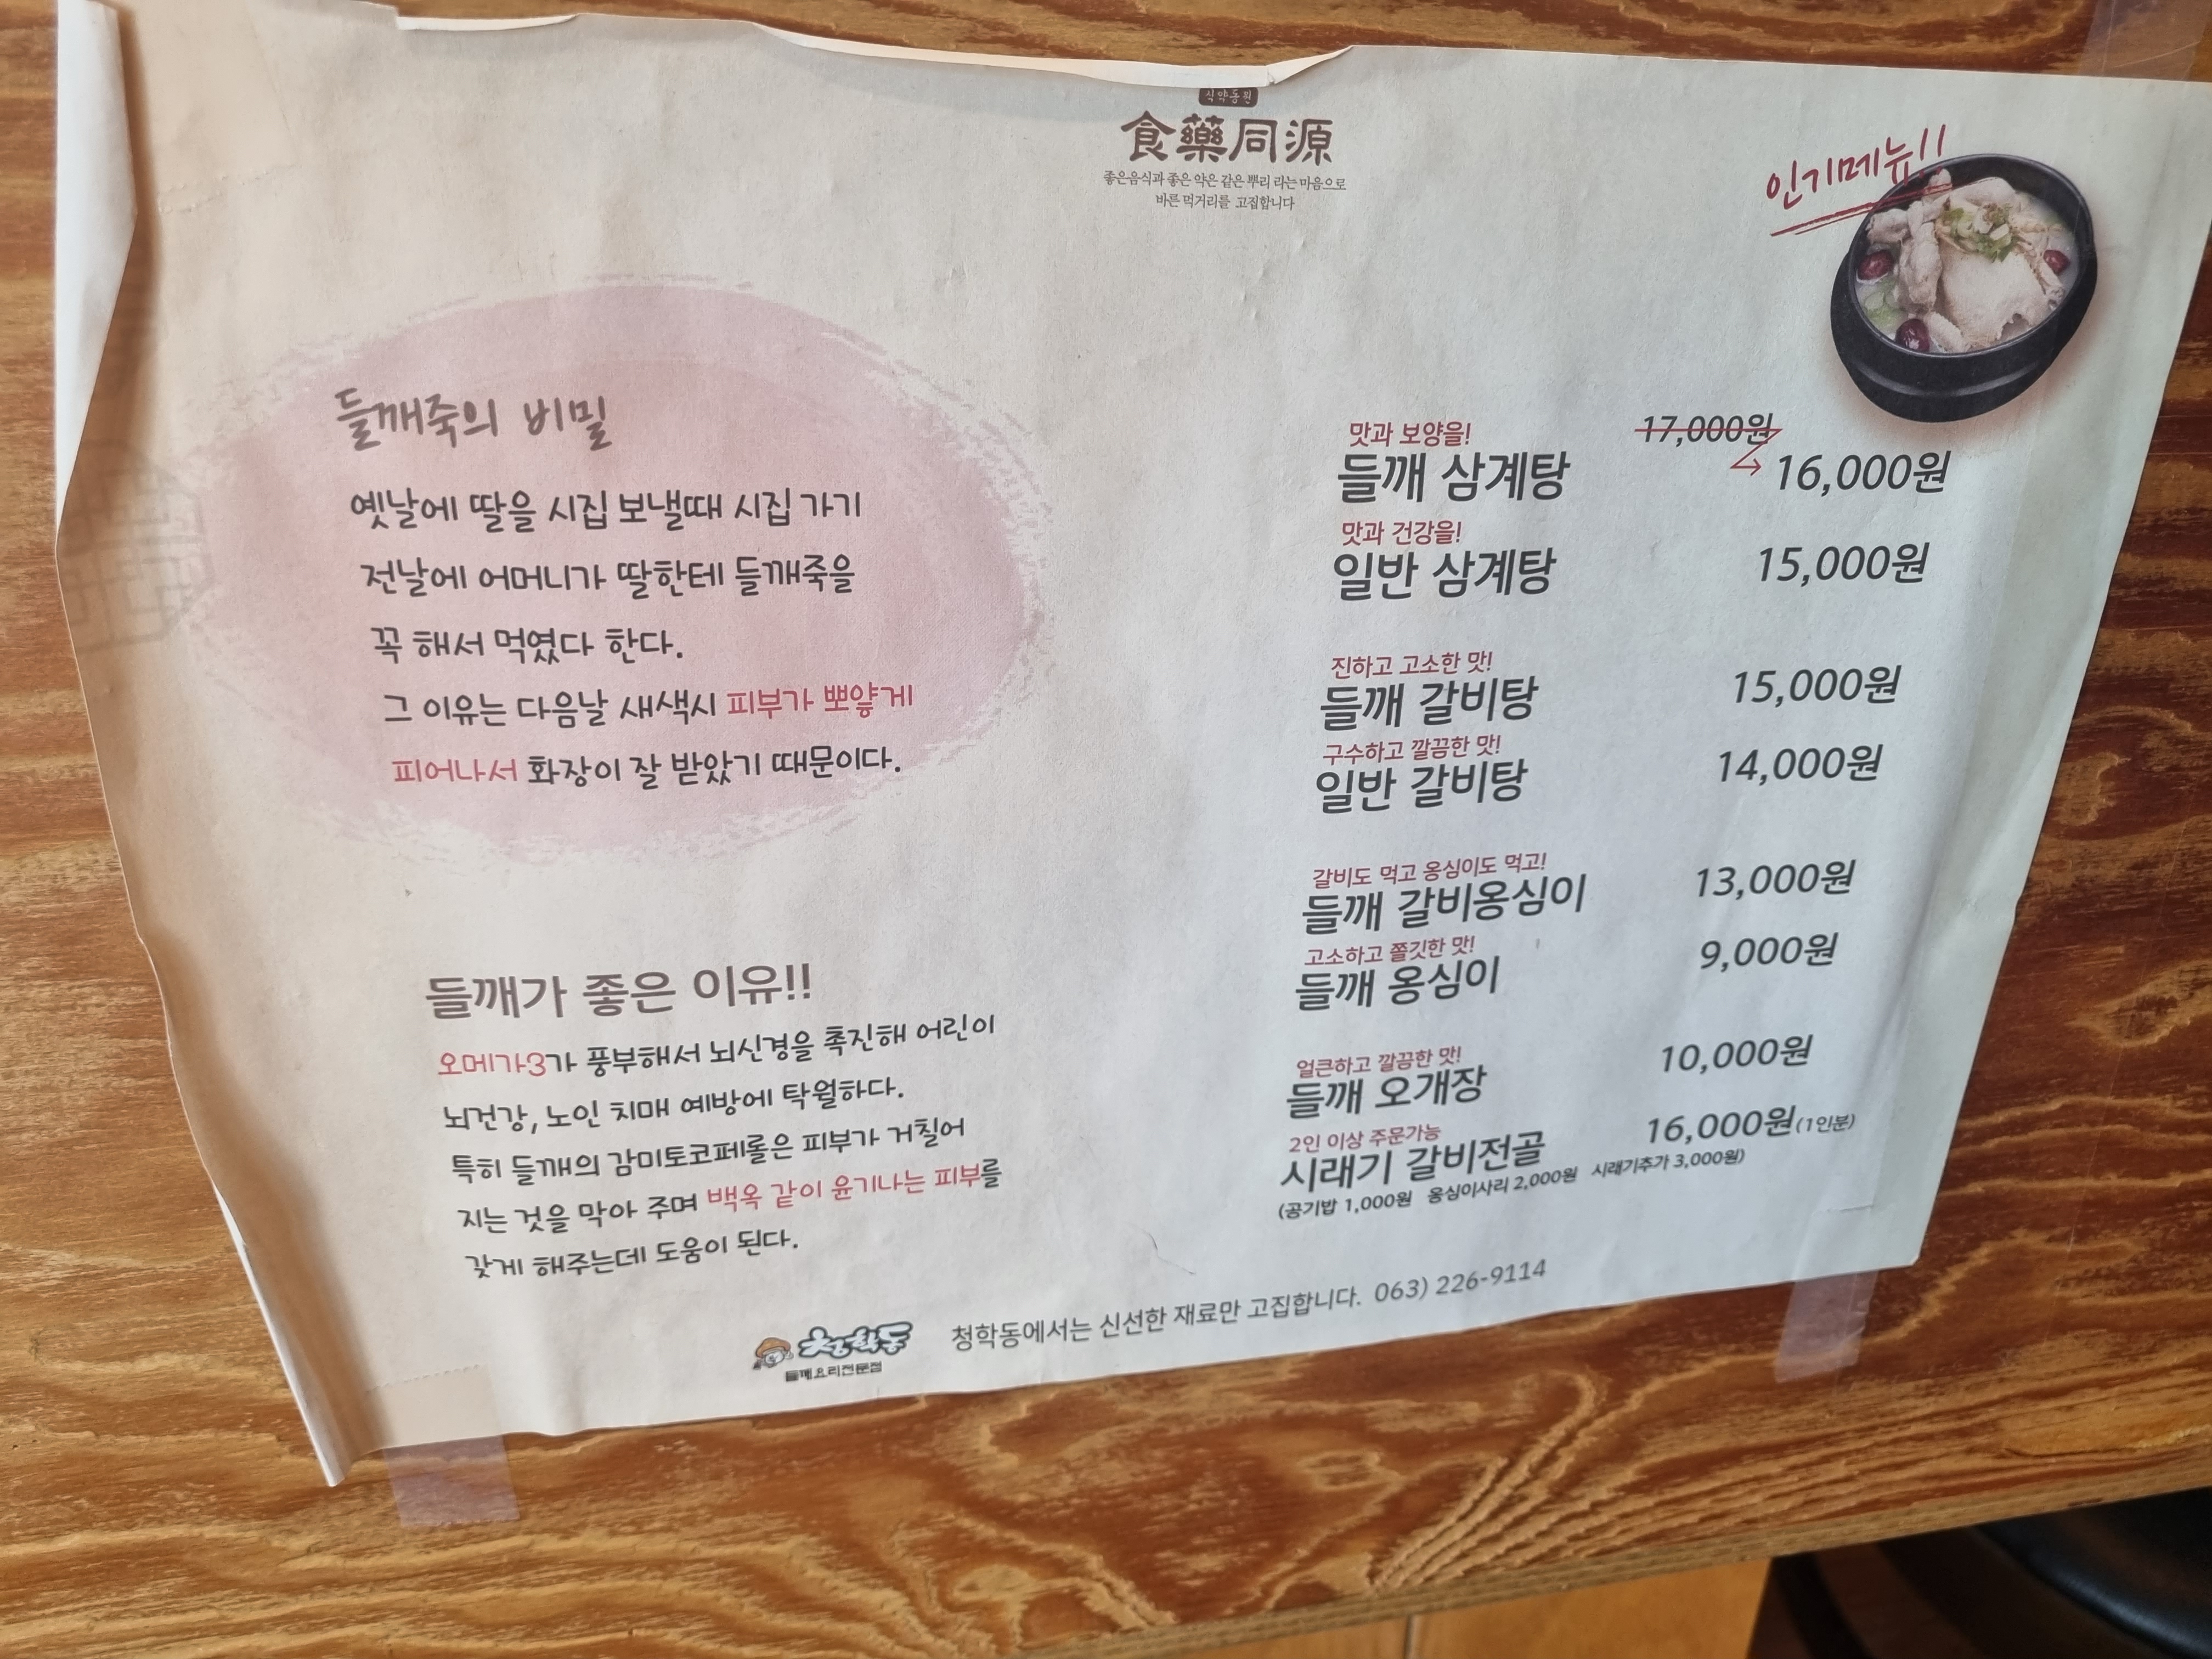 식약동원
食藥同源
좋은음식과 좋은 약은 같은 뿌리 라는 마음으로
바른 먹거리를 고집합니다
들깨죽의 비밀
옛날에 딸을 시집 보낼때 시집 가기
전날에 어머니가 딸한테 들깨죽을
꼭 해서 먹였다 한다.
그 이유는 다음날 새색시 피부가 뽀얗게
피어나서 화장이 잘 받았기 때문이다.
들깨가 좋은 이유!!
오메가3가 풍부해서 뇌신경을 촉진해 어린이
뇌건강, 노인 치매 예방에 탁월하다.
특히 들깨의 감미토코페롤은 피부가 거칠어
지는 것을 막아 주며 백옥 같이 윤기나는 피부를
갖게 해주는데 도움이 된다.
인기메뉴!!
맛과 보양을!
들깨 삼계탕 17,000원 16,000원
맛과 건강을!
일반 삼계탕 15,000원
진하고 고소한 맛!
들깨 갈비탕 15,000원
구수하고 깔끔한 맛!
일반 갈비탕 14,000원
갈비도 먹고 옹심이도 먹고!
들깨 갈비옹심이 13,000원
고소하고 쫄깃한 맛!
들깨 옹심이 9,000원
얼큰하고 깔끔한 맛!
들깨 오개장 10,000원
2인 이상 주문가능
시래기 갈비전골 16,000원(1인분)
(공기밥 1,000원 옹심이사리 2,000원 시래기추가 3,000원)
청학동
들깨요리전문점
청학동에서는 신선한 재료만 고집합니다. 063) 226-9114